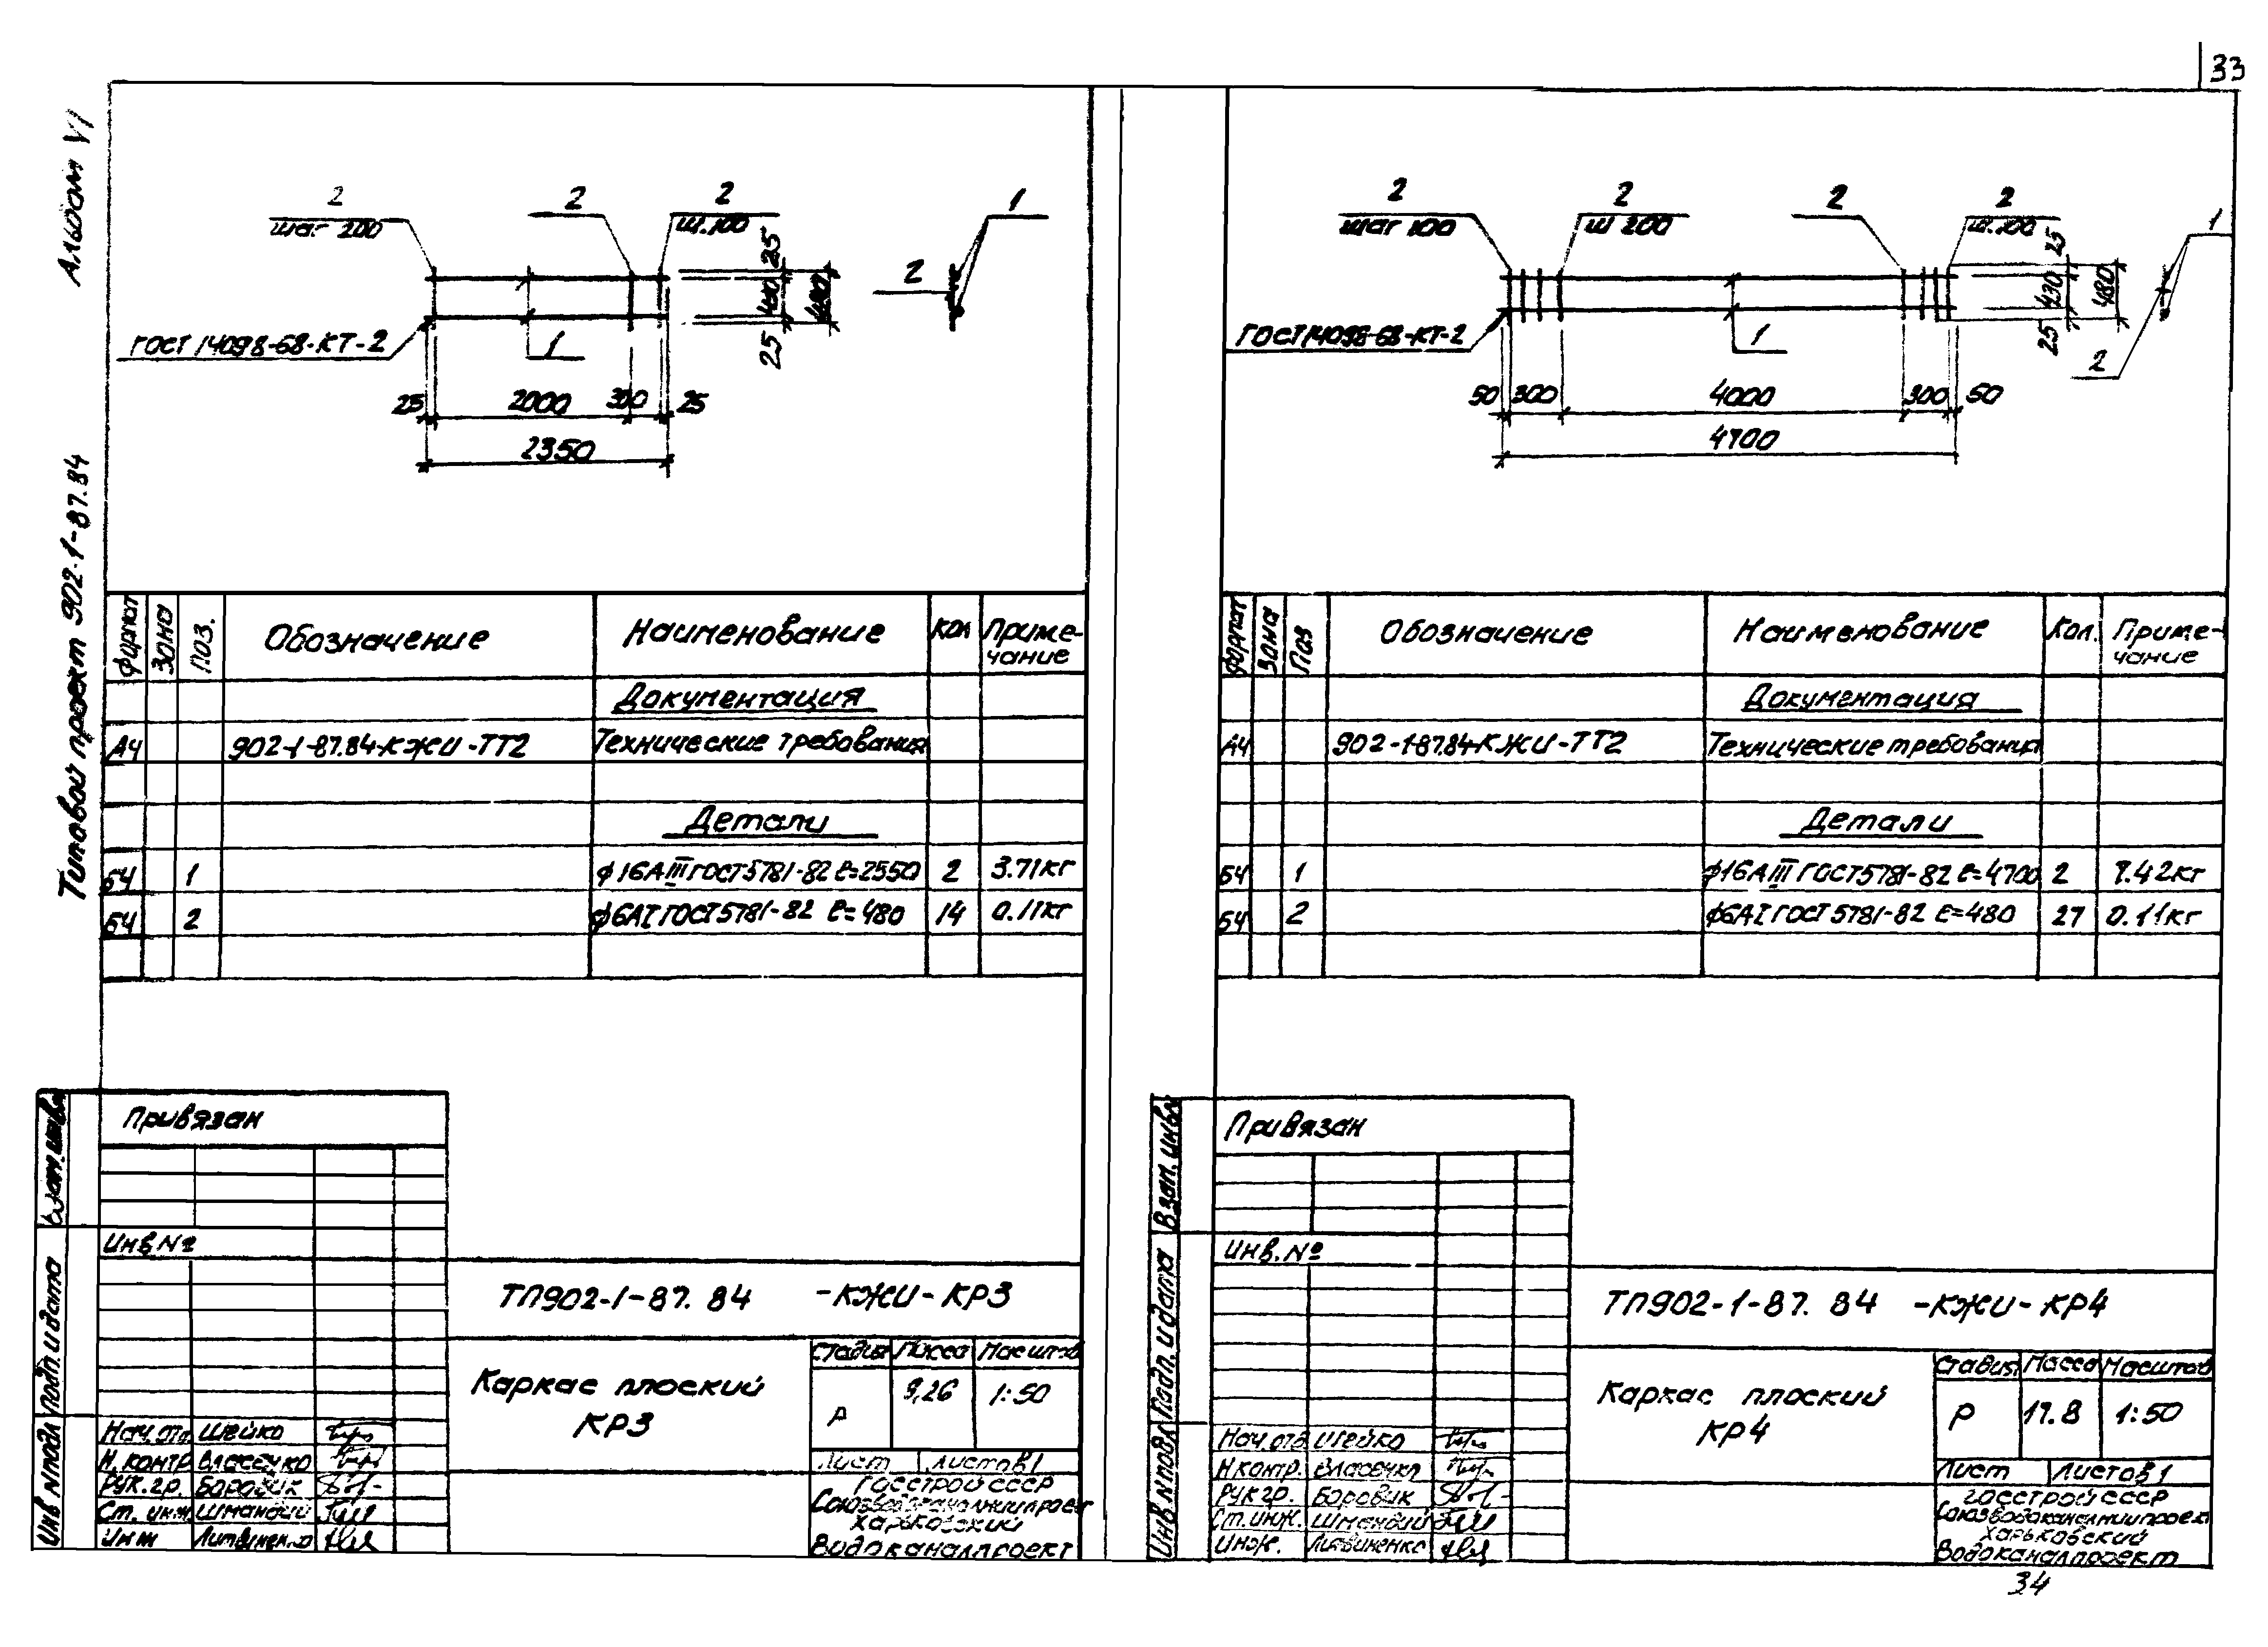 33
Альбом VI
Типовой проект 902-1-87.84
2
шаг 200
2
2
ш.100
1
2
25
430
480
25
ГОСТ 14098-68-КТ-2
1
25 2000 300 25
2350
Формат Зона Поз. Обозначение Наименование Кол Приме-
чание
Документация
А4 902-1-87.84-КЖИ-ТТ2 Технические требования
Детали
БЧ 1 ф16АIII ГОСТ5781-82 ℓ=2550 2 3.71кг
БЧ 2 ф6АI ГОСТ5781-82 ℓ=480 14 0.11кг
Привязан
Взам.инв.№
Инв №
Подп. и дата
Инв №подл
ТП902-1-87.84 -КЖИ-КР3
Каркас плоский
КР3
Стадия Масса Масштаб
Р 9,26 1:50
Лист Листов 1
Госстрой СССР
Союзводоканалниипроект
Харьковский
Водоканалпроект
Нач.отд Шейко
Н. контр Власенко
Рук.гр. Боровик
Ст. инж. Шмандий
Инж Литвиненко
2
шаг 100
2
ш 200
2
2
ш.100
1
25
430
480
25
2
ГОСТ14098-68-КТ-2
1
50 300 4000 300 50
4700
Формат Зона Поз Обозначение Наименование Кол. Приме-
чание
Документация
А4 902-1-87.84-КЖИ-ТТ2 Технические требования
Детали
БЧ 1 ф16АIII ГОСТ5781-82 ℓ=4700 2 7.42кг
БЧ 2 ф6АI ГОСТ 5781-82 ℓ=480 27 0.11кг
Привязан
Взам. инв№
Инв. №
Подп. и дата
Инв.№подл
ТП902-1-87.84 -КЖИ-КР4
Каркас плоский
КР4
Стадия Масса Масштаб
Р 17.8 1:50
Лист Листов 1
Госстрой СССР
Союзводоканалниипроект
Харьковский
Водоканалпроект
Нач.отд Шейко
Н контр. Власенко
Рук гр. Боровик
Ст.инж. Шмандий
Инж. Литвиненко
34